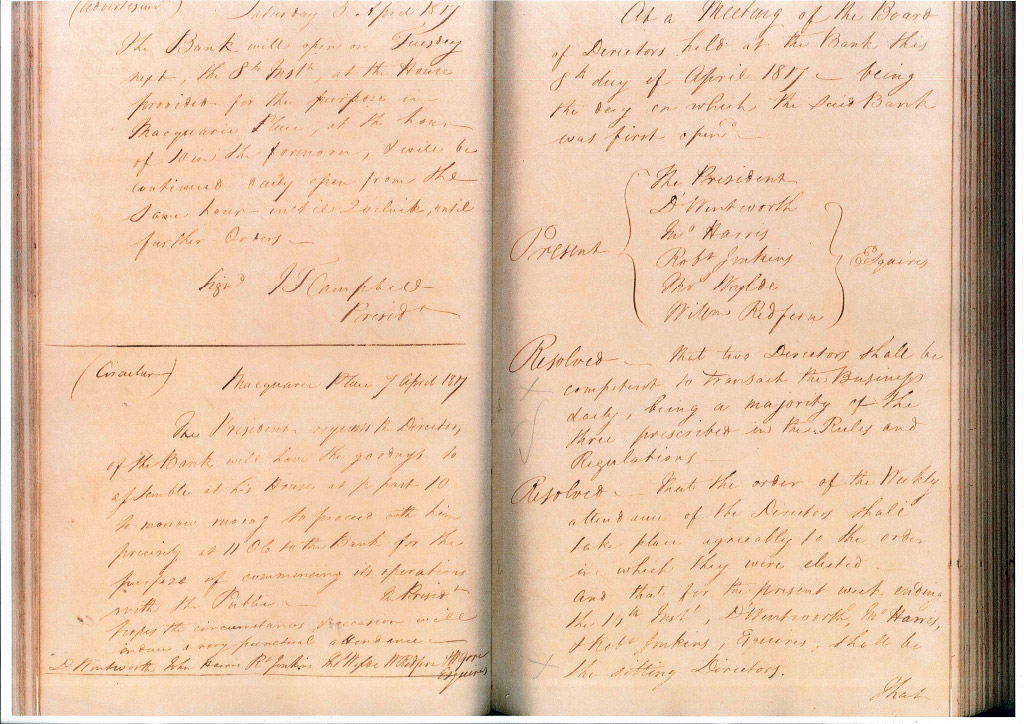 (Advertisem)
Saturday 5 April 1817
The Bank will open on Tuesday
next, the 8th Inst, at the House
provided for the purpose in
Macquarie Place, at the hour
of 10 in the forenoon, & will be
continued daily open from the
same hour until 2 o'clock, until
further Orders
Signd J T Campbell
Presidt
(Circular) Macquarie Place 7 April 1817
The President requests the Directors
of the Bank will have the goodness to
assemble at his House at ½ past 10
to-morrow morng to proceed with him
precisely at 11 O'C to the Bank for the
purpose of commencing its operations
with the Public The Presidt
hopes the circumstances occasion will
ensure a very punctual attendance
D Wentworth John Harris Rt Jenkins Thos Wylde W Redfern
Esquires
At a Meeting of the Board
of Directors held at the Bank this
8th day of April 1817 being
the day on which the said Bank
was first opend
Present
The President
D Wentworth
Jno Harris
Robt Jenkins
Thos Wylde
Willm Redfern
Esquires
Resolved That two Directors shall be
competent to transact the Business
daily, being a majority of the
three prescribed in the Rules and
Regulations
Resolved That the order of the Weekly
attendance of the Directors shall
take place agreeably to the order
in which they were elected
and that for the present week ending
the 14th Inst, D Wentworth, Jno Harris,
& Robt Jenkins, Esquires, shall be
the sitting Directors.
That